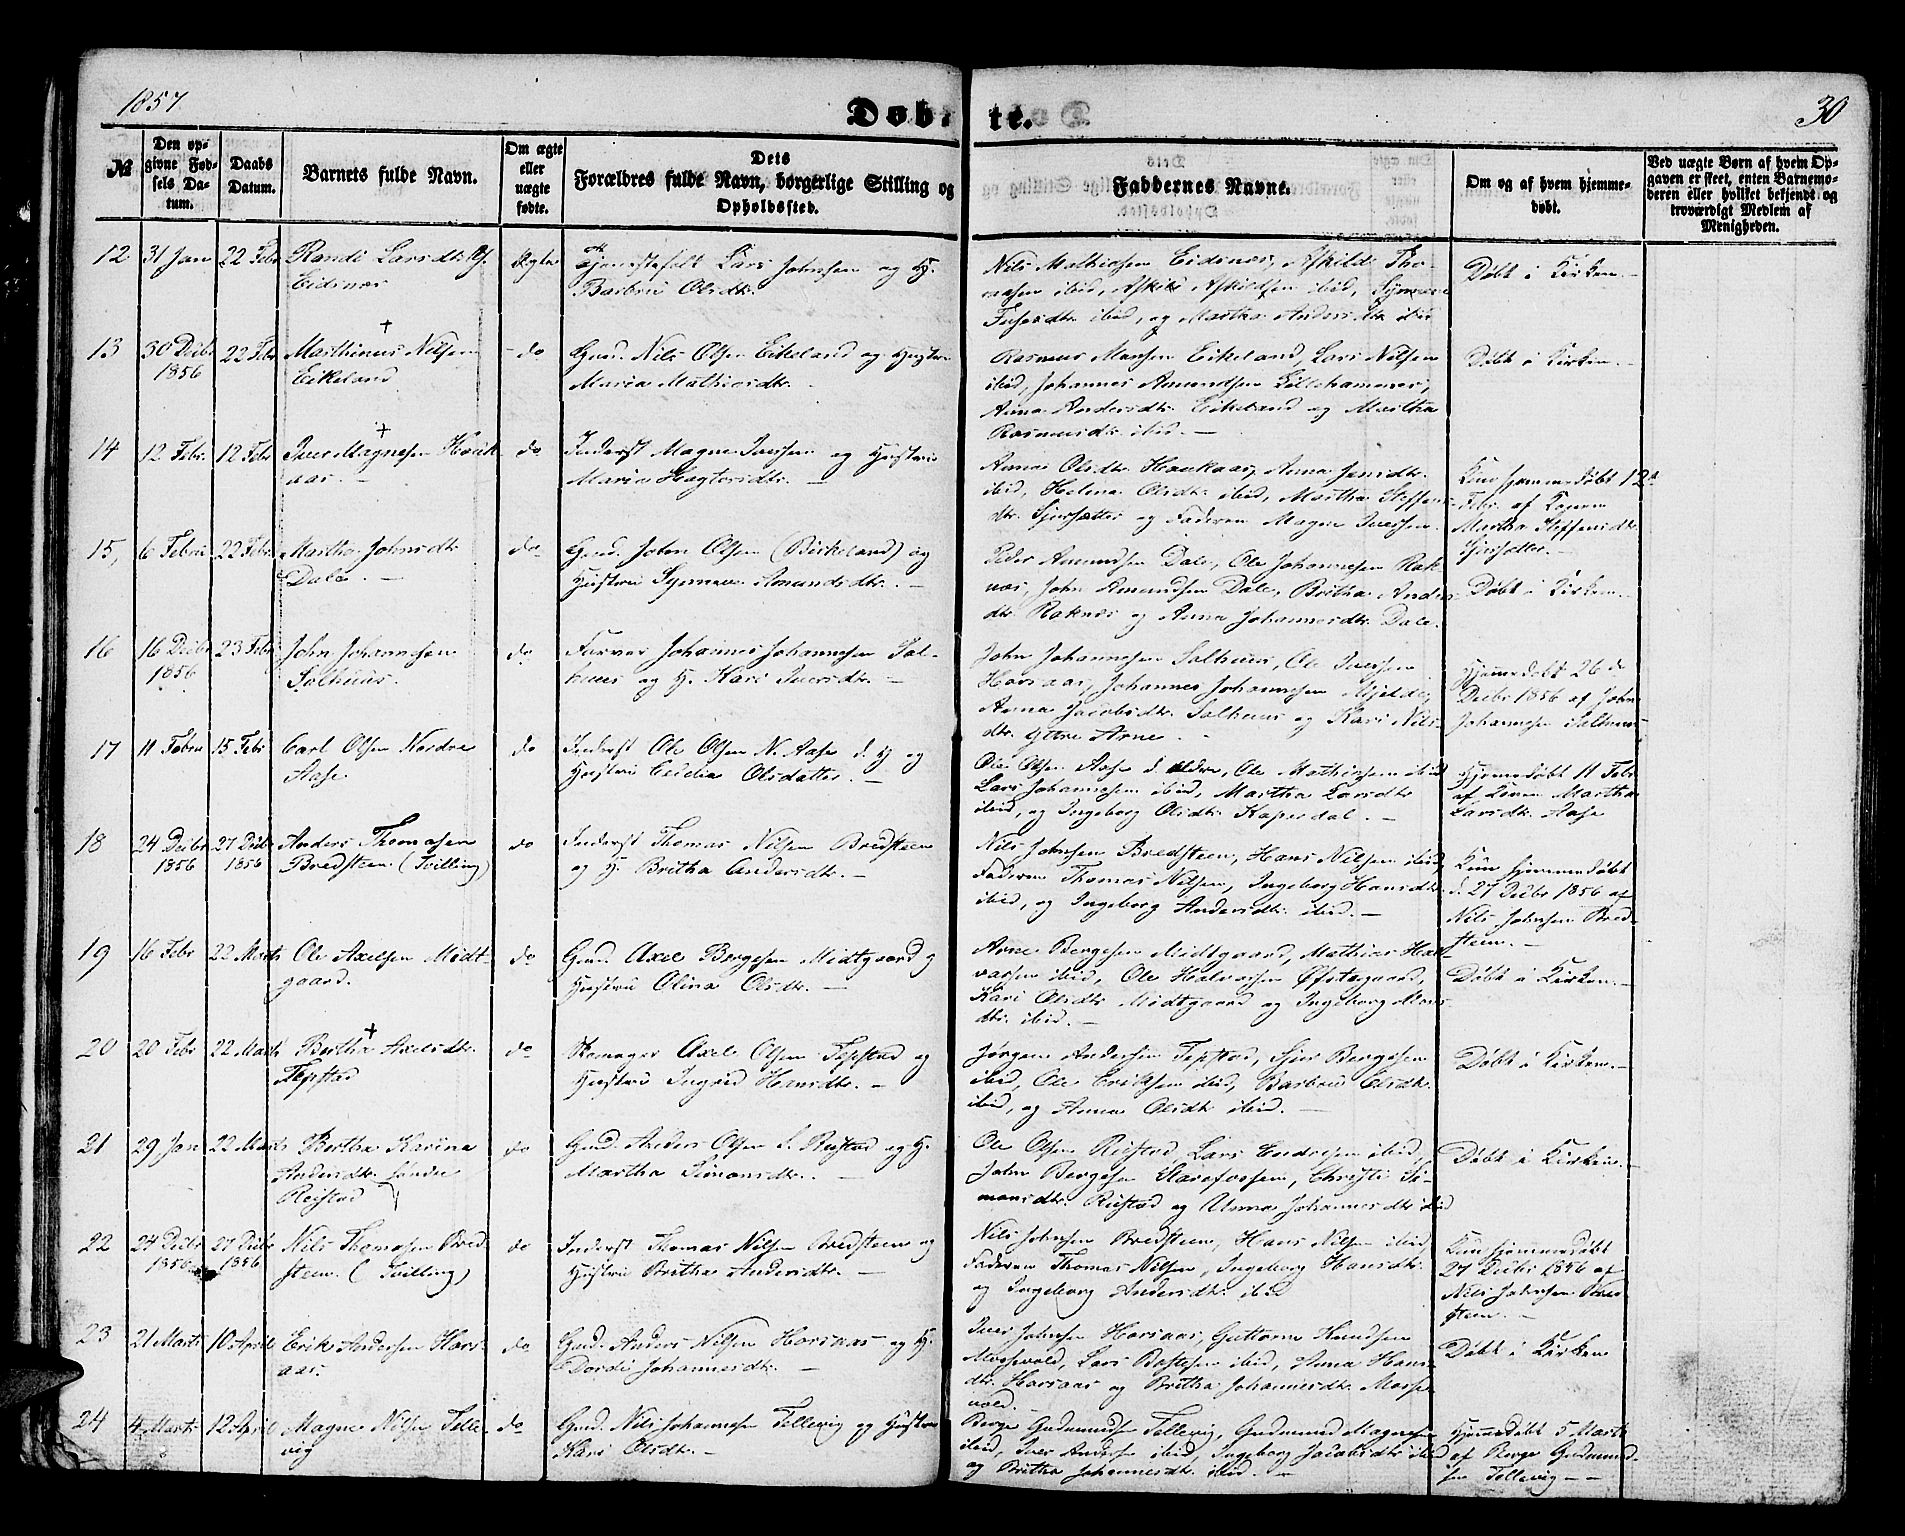 1857.
Døbte.
30
№
Den opgivne Fødsels Datum.
Daabs Datum.
Barnets fulde Navn.
Om ægte eller uægte fødte.
Dets Forældres fulde Navn, borgerlige Stilling og Opholdssted.
Faddernes Navne.
Om og af hvem hjemmedøbt.
Ved uægte Børn af hvem Opgaven er skeet, enten Barnemoderen eller hvilket bekjendt og troværdigt Medlem af Menigheden.
12 31 Jan 22 Febr Randi Larsdtr Eidsnæs Ægte
Lars Johnsen og H. Barbru Olsdtr.
Nils Mathiesen Eidsnæs, Askild Thomasen ibid, Askild Askildsen ibid, Synneve ibid, og Martha Andersdtr ibid
Døbt i Kirken.
13 30 Decbr 1856 22 Febr Marthinus Nilsen Eikeland do
Gmd. Nils Olsen Eikeland og Hustru Maria Mathiasdtr.
Rasmus Monsen Eikeland, Lars Nilsen ibid, Johannes Amundsen Lillehammer, Anna Andersdtr. Eikeland og Martha Rasmusdtr. ibid.
Døbt i Kirken.
14 12 Febr. 12 Febr Iver Magnesen Haukaas. do
Inderst Magne Iversen og Hustru Maria
Annas Olsdtr. Haukaas, Anna Jensdtr. ibid, Helena Olsdtr. ibid, Martha Steffensdtr. Sjursætter og Faderen Magne Iversen.
Kun hjemmedøbt 12te Febr. af Konen Martha Steffensdtr. Sjursætter.
15, 6 Februar 22 Febr Martha Johnsdtr Dale. do
Gmd. John Olsen (Birkeland) og Hustru Synneve Amundsdtr.
Peder Amundsen Dale, Ole Johannesen Raknæs, John Amundsen Dale, Britha Andersdtr. Raknæs og Anna Johannesdtr. Dale.
Døbt i Kirken.
16 16 Decbr 1856 23 Febr John Johannesen Salhuus. do
Farver Johannes Johannesen Salhuus og H. Kari Iversdtr.
John Johannesen Salhuus, Ole Iversen Horsaas, Johannes Johannesen Mjelde, Anna Jacobsdtr. Salhuus og Kari Nilsdtr. Yttre Arne.
Hjemmedøbt 26de Decbr 1856 af John Johannesen Salhuus
17 11 Febru 15 Febr Carl Olsen Nordre Aase do
Inderst Ole Olsen N. Aase d. y og Hustru Cecilia Olsdatter.
Ole Olsen Aase d. eldre, Ole Mathiesen ibid Lars Johannesen ibid, Martha Larsdtr ibid, og Ingeborg Olsdtr.
Hjemmedøbt 11 Febr af Konen Martha Larsdtr. Aase
18 24 Decbr 1856 27 Decbr 1856 Anders Thomasen Bredsteen (Tvilling) do
Inderst Thomas Nilsen Bredsteen og H. Britha Andersdtr.
Nils Johnsen Bredsteen, Hans Nilsen ibid, Faderen Thomas Nilsen, Ingeborg Hansdtr. ibid, og Ingeborg Andersdtr. ibid.
Kun hjemmedøbt d. 27 Decbr 1856 af Nils Johnsen Bredsteen.
19 16 Febr 22 Marts Ole Axelsen Midtgaard. do
Gmd. Axel Bergesen Midtgaard og Hustru Olina Olsdtr.
Arne Bergesen Midtgaard, Mathias Halvorsen ibid, Ole Halvorsen Øfstegaard, Kari Olsdtr Midtgaard og Ingeborg Monsdtr. ibid.
Døbt i Kirken.
20 20 Febr 22 Marts Bertha Axelsdtr. Tepstad do
Skomager Axel Olsen Tepstad og Hustru Ingrid Hansdtr.
Jørgen Andersen Tepstad, Sjur Bergesen ibid, Ole Eriksen ibid, Barbru Olsdtr. ibid, og Anna Olsdtr ibid.
Døbt i Kirken.
21 29 Jan 22 Marts Bertha Karina Andersdtr. søndre Reistad do
Gmd. Anders Olsen S. Reistad og H. Martha Simonsdtr.
Ole Olsen Reistad, Lars Endresen ibid, John Bergesen Storefossen, Christi Simonsdtr. Reistad og Anna Johannesdtr ibid
Døbt i Kirken.
22 24 Decbr 1856 27 Decbr 1856 Nils Thomasen Bredsteen. (Tvilling) do
Inderst Thomas Nilsen Bredsteen og Hustru Britha Andersdtr.
Nils Johnsen Bredsteen, Hans Nilsen ibid, Faderen Thomas Nilsen, Ingeborg Hansdtr. og Ingeborg Andersdtr. ibid
Kun hjemmedøbt 27 Decbr 1856 af Nils Johnsen Bredsteen.
23 21 Marts 10 April Erik Andersen Horsaas. do
Gmd. Anders Nilsen Horsaas og H. Dordi Johannesdtr.
Iver Johnsen Horsaas, Guttorm Knudsen Mossevold, Lars ibid, Anna Hansdtr. Horsaas og Britha Johannesdtr. Mossevold.
Døbt i Kirken
24 4 Marts 12 April Magne Nilsen Tellevig do
Gmd. Nils Johannesen Tellevig og Hustru Kari Olsdtr.
Berge Gudmundsen Tellevig, Gudmund Magnesen ibid, Iver Andersen ibid, Ingeborg Jacobsdtr ibid og Britha Johannesdtr. ibid.
Hjemmedøbt 5 Marts af Berge Gudmundsen Tellevig